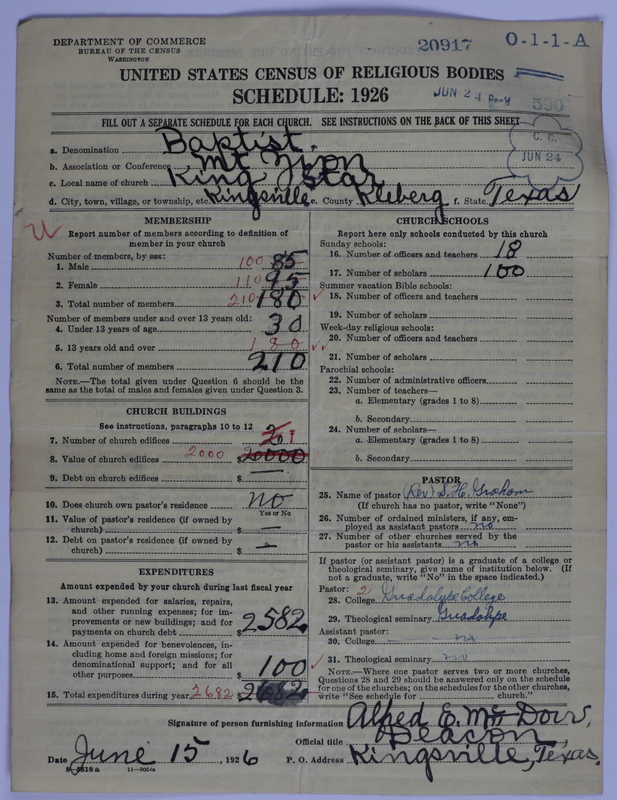 DEPARTMENT OF COMMERCE
BUREAU OF THE CENSUS
WASHINGTON
20917
O-1-1-A
UNITED STATES CENSUS OF RELIGIOUS BODIES
SCHEDULE: 1926
JUN 24 Rec'd
590
FILL OUT A SEPARATE SCHEDULE FOR EACH CHURCH. SEE INSTRUCTIONS ON THE BACK OF THIS SHEET
C. C.
JUN 24
a. Denomination Baptist.
b. Association or Conference Mt Zion
c. Local name of church King Star
d. City, town, village, or township, etc. Kingsville e. County Kleberg f. State Texas
MEMBERSHIP
Report number of members according to definition of
member in your church
Number of members, by sex:
1. Male 100 85
2. Female 110 95
3. Total number of members 210 180
Number of members under and over 13 years old:
4. Under 13 years of age 30
5. 13 years old and over 180
6. Total number of members 210
NOTE.—The total given under Question 6 should be the
same as the total of males and females given under Question 3.
CHURCH BUILDINGS
See instructions, paragraphs 10 to 12
7. Number of church edifices 1
8. Value of church edifices 2000 $ 20000
9. Debt on church edifices $ —
10. Does church own pastor's residence no
Yes or No
11. Value of pastor's residence (if owned by
church) $ —
12. Debt on pastor's residence (if owned by
church) $ —
EXPENDITURES
Amount expended by your church during last fiscal year
13. Amount expended for salaries, repairs,
and other running expenses; for im-
provements or new buildings; and for
payments on church debt $ 2582
14. Amount expended for benevolences, in-
cluding home and foreign missions; for
denominational support; and for all
other purposes $ 100
15. Total expenditures during year 2682 $ 2682
CHURCH SCHOOLS
Report here only schools conducted by this church
Sunday schools:
16. Number of officers and teachers 18
17. Number of scholars 100
Summer vacation Bible schools:
18. Number of officers and teachers
19. Number of scholars
Week-day religious schools:
20. Number of officers and teachers
21. Number of scholars
Parochial schools:
22. Number of administrative officers
23. Number of teachers—
a. Elementary (grades 1 to 8)
b. Secondary
24. Number of scholars—
a. Elementary (grades 1 to 8)
b. Secondary
PASTOR
25. Name of pastor (Rev) S. H. Graham
(If church has no pastor, write "None")
26. Number of ordained ministers, if any, em-
ployed as assistant pastors no
27. Number of other churches served by the
pastor or his assistants no
If pastor (or assistant pastor) is a graduate of a college or
theological seminary, give name of institution below. (If
not a graduate, write "No" in the space indicated.)
Pastor: 2
28. College Guadalupe College
29. Theological seminary Guadalupe
Assistant pastor:
30. College no
31. Theological seminary no
NOTE.—Where one pastor serves two or more churches,
Questions 28 and 29 should be answered only on the schedule
for one of the churches; on the schedules for the other churches,
write "See schedule for church."
Signature of person furnishing information Alfred E.
Official title Deacon
Date June 15, 1926 P. O. Address Kingsville, Texas.
8-5518a 11-9054a